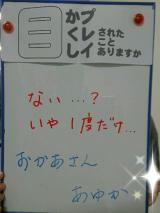 目かくし
プレイ
された
こと
ありますか
ない…?
いや1度だけ…
おかあさん
あゆか